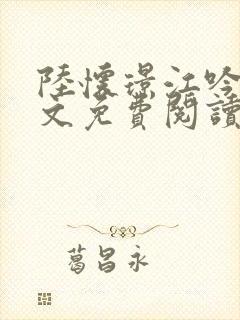 陸懷璟江吟
文免費閱讀
葛昌永